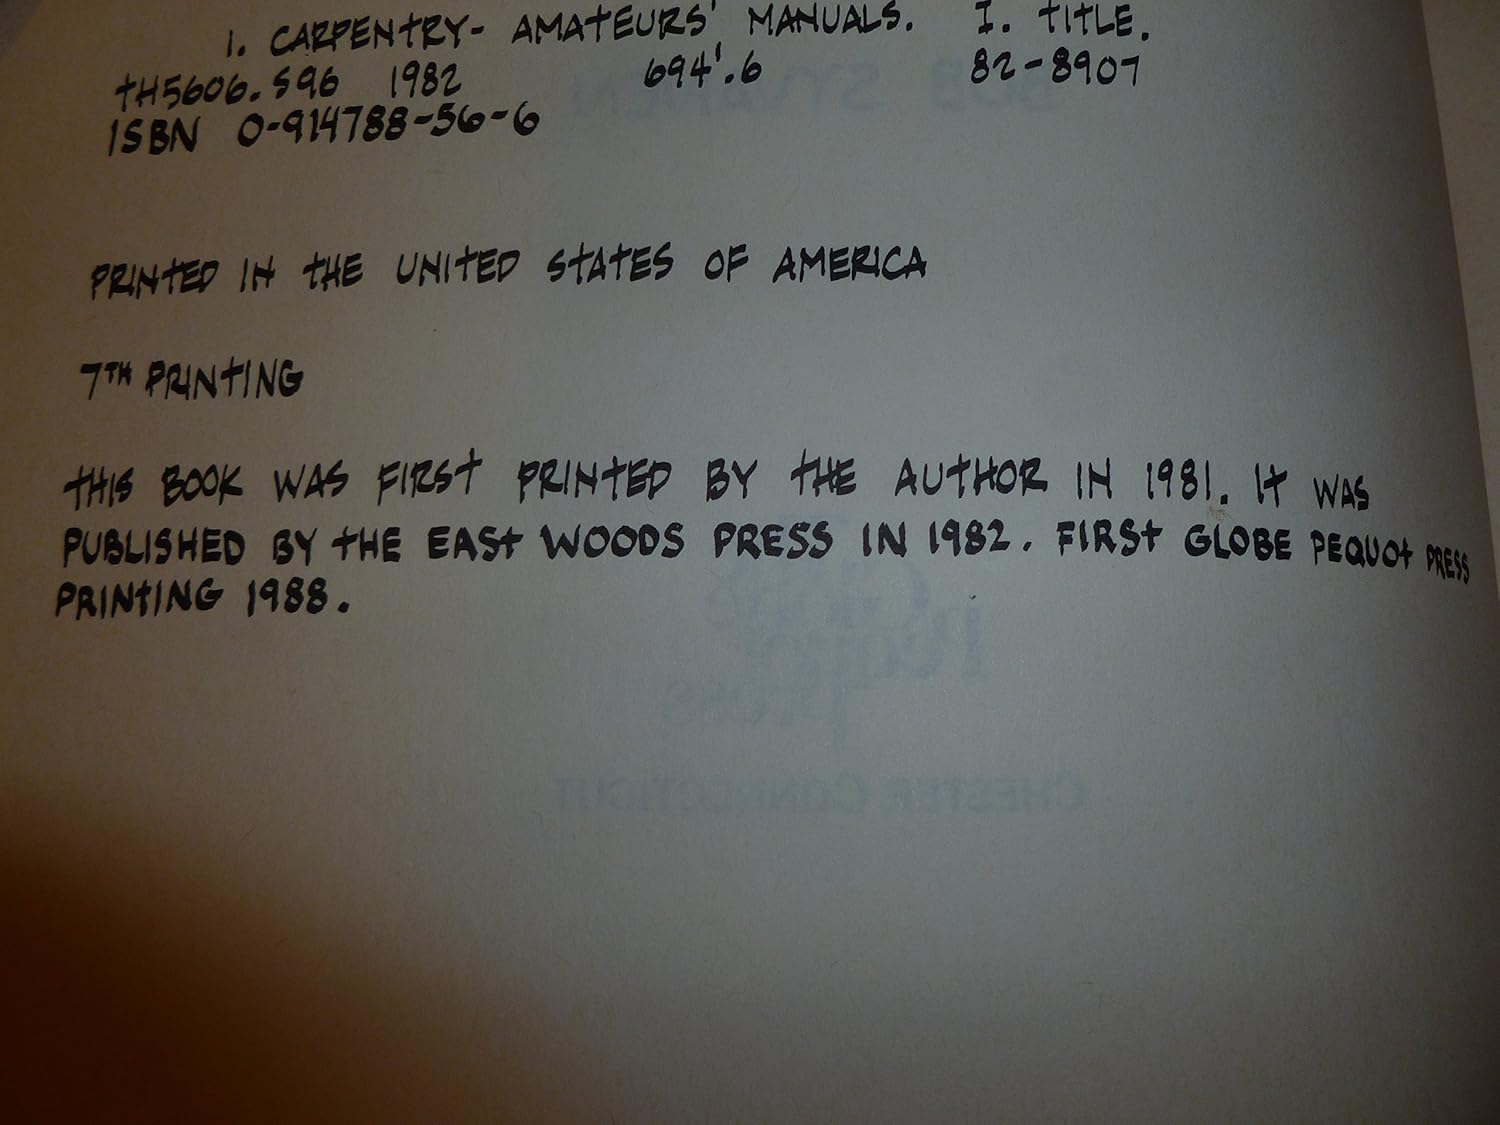 1. CARPENTRY- AMATEURS' MANUALS. I. TITLE.
TH5606.S96 1982 694'.6 82-8907
ISBN 0-914788-56-6
PRINTED IN THE UNITED STATES OF AMERICA
7TH PRINTING
THIS BOOK WAS FIRST PRINTED BY THE AUTHOR IN 1981. IT WAS
PUBLISHED BY THE EAST WOODS PRESS IN 1982. FIRST GLOBE PEQUOT PRESS
PRINTING 1988.
CHESTER CONNECTICUT